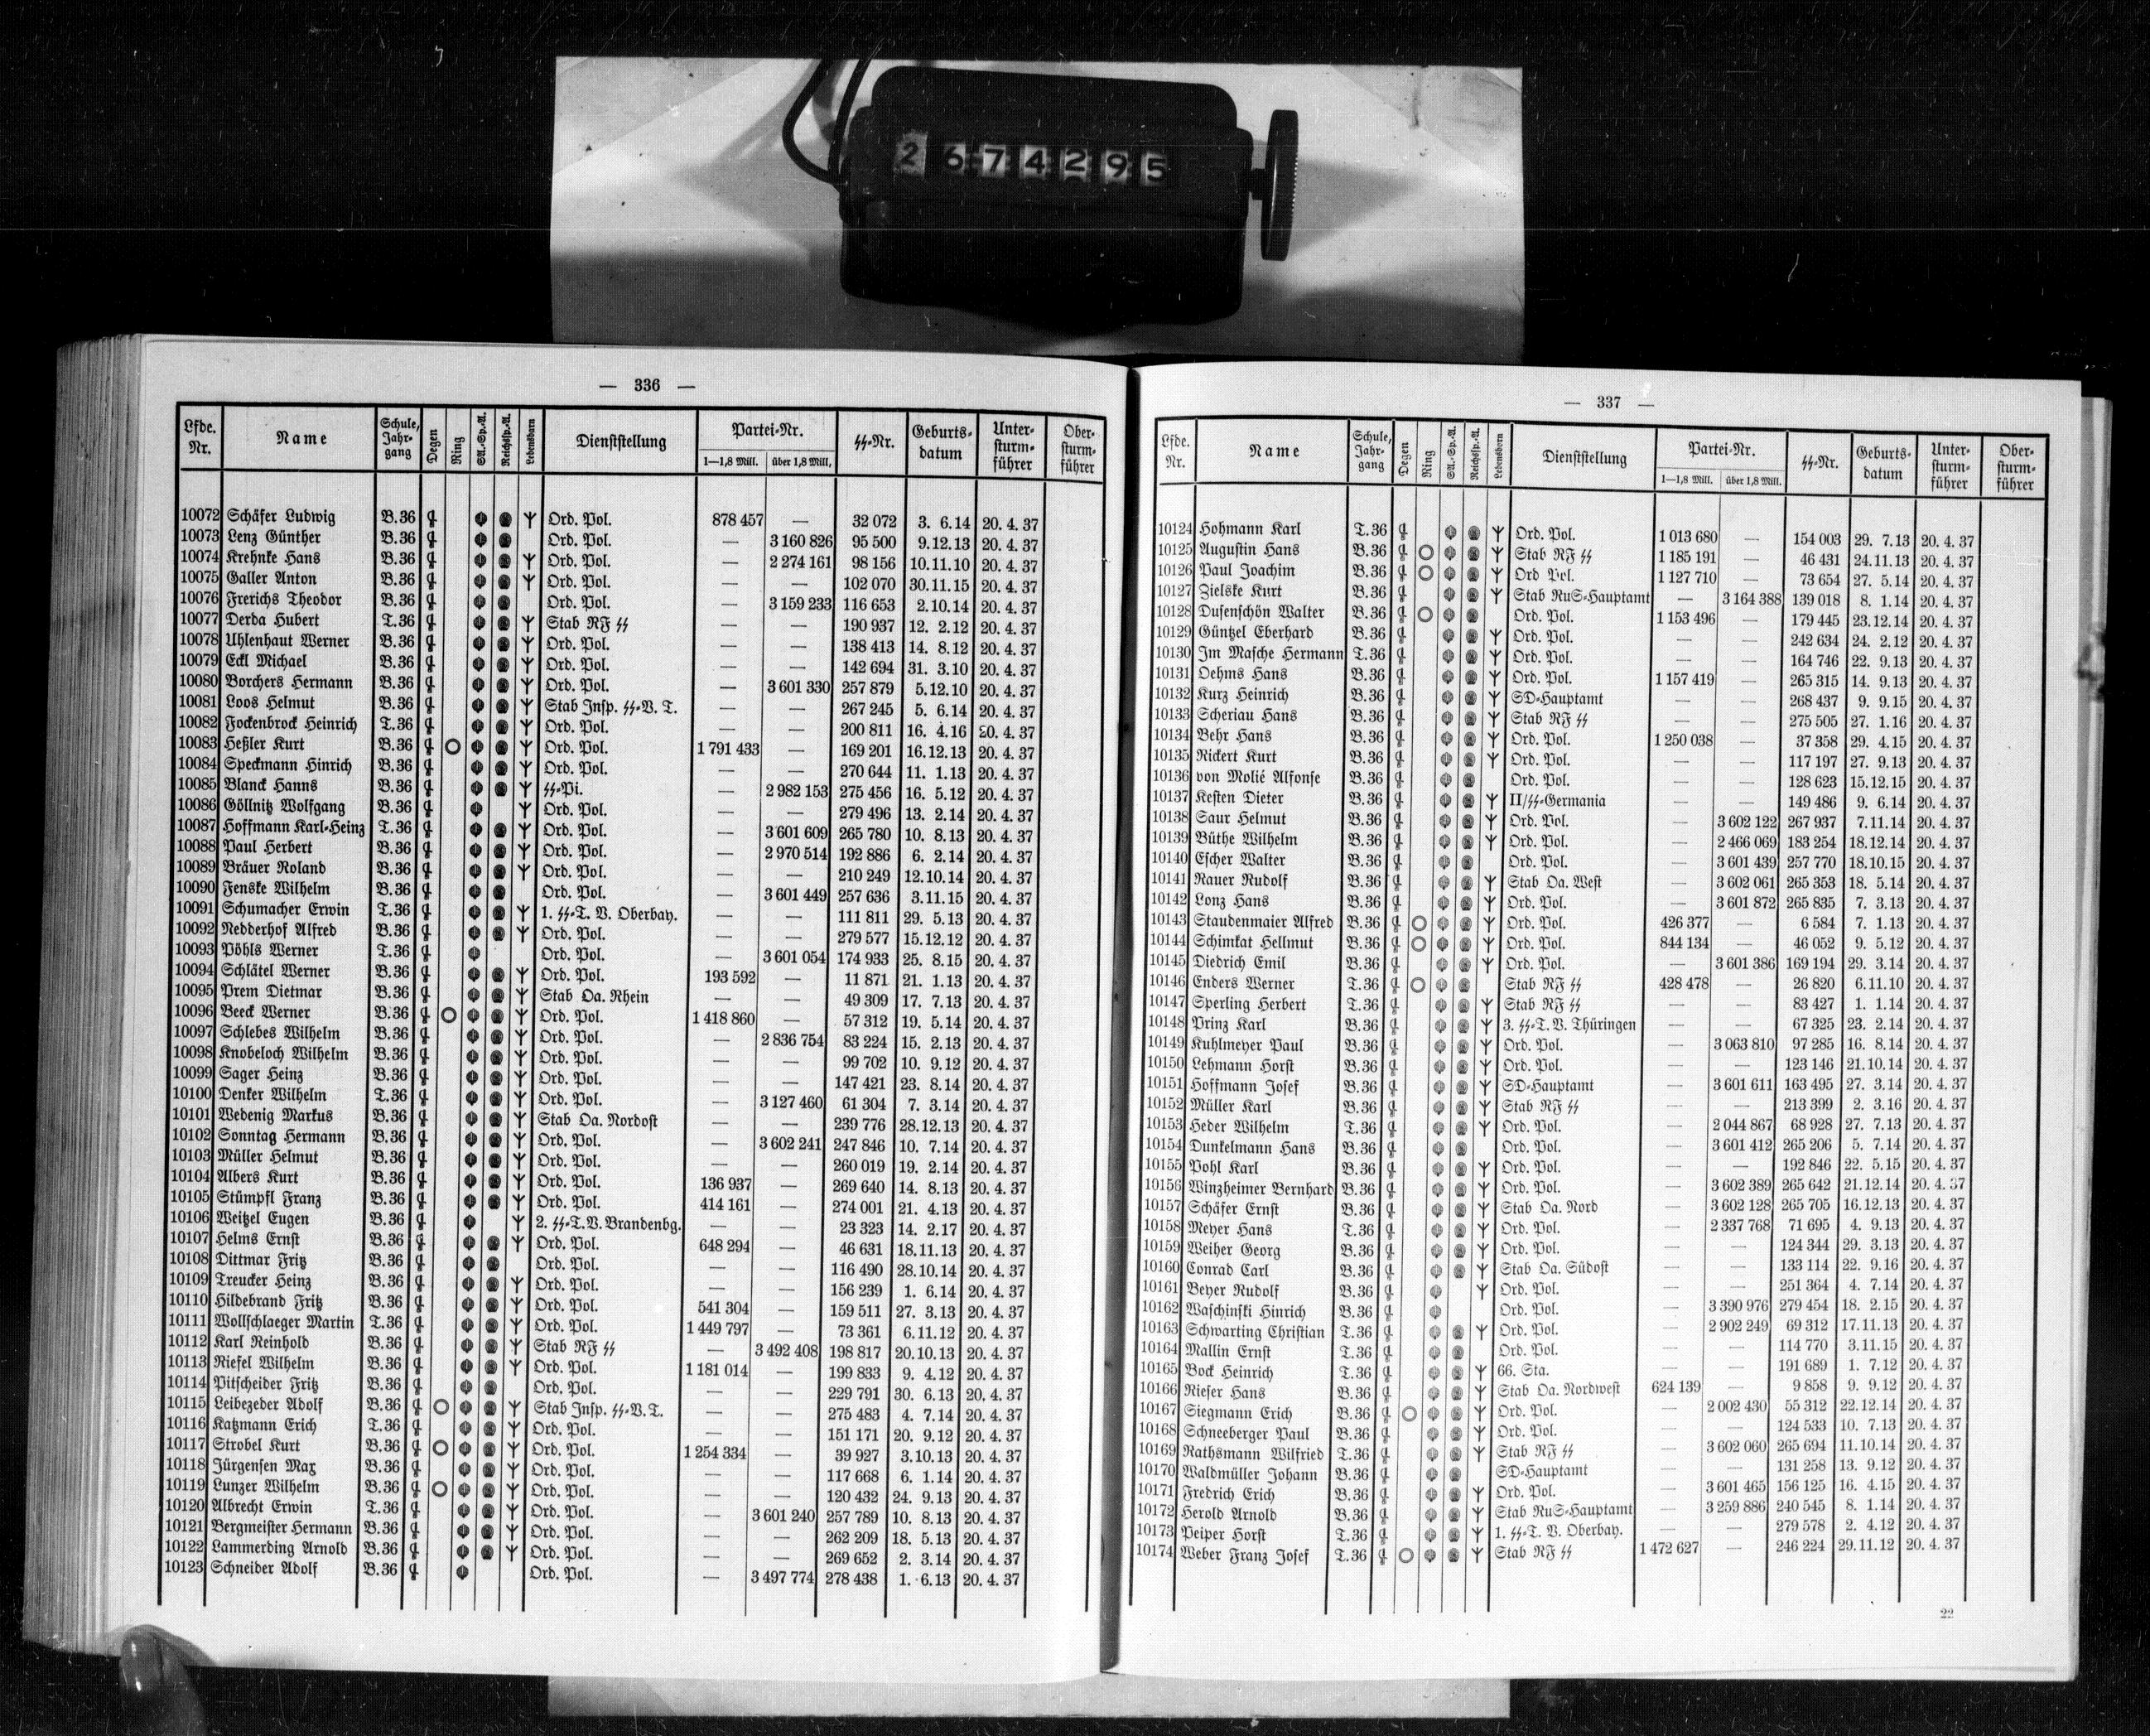 2 6 7 4 2 9 5
— 336 —
Lfde. Nr. Name Schule, Jahrgang Degen Ring SA.-Sp.-A. Reichssp.-A. Lebensborn Dienststellung Partei-Nr. 1—1,8 Mill. über 1,8 Mill. SS-Nr. Geburts-datum Unter-sturm-führer Ober-sturm-führer
10072 Schäfer Ludwig B.36 Ord. Pol. 878 457 — 32 072 3. 6.14 20. 4. 37
10073 Lenz Günther B.36 Ord. Pol. — 3 160 826 95 500 9.12.13 20. 4. 37
10074 Krehnke Hans B.36 Ord. Pol. — 2 274 161 98 156 10.11.10 20. 4. 37
10075 Galler Anton B.36 Ord. Pol. — — 102 070 30.11.15 20. 4. 37
10076 Frerichs Theodor B.36 Ord. Pol. — 3 159 233 116 653 2.10.14 20. 4. 37
10077 Derda Hubert T.36 Stab RF SS — — 190 937 12. 2.12 20. 4. 37
10078 Uhlenhaut Werner B.36 Ord. Pol. — — 138 413 14. 8.12 20. 4. 37
10079 Eckl Michael B.36 Ord. Pol. — — 142 694 31. 3.10 20. 4. 37
10080 Borchers Hermann B.36 Ord. Pol. — 3 601 330 257 879 5.12.10 20. 4. 37
10081 Loos Helmut B.36 Stab Insp. SS-V. T. — — 267 245 5. 6.14 20. 4. 37
10082 Fockenbrock Heinrich T.36 Ord. Pol. — — 200 811 16. 4.16 20. 4. 37
10083 Heßler Kurt B.36 Ord. Pol. 1 791 433 — 169 201 16.12.13 20. 4. 37
10084 Speckmann Hinrich B.36 Ord. Pol. — — 270 644 11. 1.13 20. 4. 37
10085 Blanck Hanns B.36 SS-Pi. — 2 982 153 275 456 16. 5.12 20. 4. 37
10086 Göllnitz Wolfgang B.36 Ord. Pol. — — 279 496 13. 2.14 20. 4. 37
10087 Hoffmann Karl-Heinz T.36 Ord. Pol. — 3 601 609 265 780 10. 8.13 20. 4. 37
10088 Paul Herbert B.36 Ord. Pol. — 2 970 514 192 886 6. 2.14 20. 4. 37
10089 Bräuer Roland B.36 Ord. Pol. — — 210 249 12.10.14 20. 4. 37
10090 Fenske Wilhelm B.36 Ord. Pol. — 3 601 449 257 636 3.11.15 20. 4. 37
10091 Schumacher Erwin T.36 1. SS-T. V. Oberbay. — — 111 811 29. 5.13 20. 4. 37
10092 Nedderhof Alfred B.36 Ord. Pol. — — 279 577 15.12.12 20. 4. 37
10093 Pöhls Werner T.36 Ord. Pol. — 3 601 054 174 933 25. 8.15 20. 4. 37
10094 Schlätel Werner B.36 Ord. Pol. 193 592 — 11 871 21. 1.13 20. 4. 37
10095 Prem Dietmar B.36 Stab Oa. Rhein — — 49 309 17. 7.13 20. 4. 37
10096 Beeck Werner B.36 Ord. Pol. 1 418 860 — 57 312 19. 5.14 20. 4. 37
10097 Schlebes Wilhelm B.36 Ord. Pol. — 2 836 754 83 224 15. 2.13 20. 4. 37
10098 Knobeloch Wilhelm B.36 Ord. Pol. — — 99 702 10. 9.12 20. 4. 37
10099 Sager Heinz B.36 Ord. Pol. — — 147 421 23. 8.14 20. 4. 37
10100 Denker Wilhelm T.36 Ord. Pol. — 3 127 460 61 304 7. 3.14 20. 4. 37
10101 Wedenig Markus B.36 Stab Oa. Nordost — — 239 776 28.12.13 20. 4. 37
10102 Sonntag Hermann B.36 Ord. Pol. — 3 602 241 247 846 10. 7.14 20. 4. 37
10103 Müller Helmut B.36 Ord. Pol. — — 260 019 19. 2.14 20. 4. 37
10104 Albers Kurt B.36 Ord. Pol. 136 937 — 269 640 14. 8.13 20. 4. 37
10105 Stümpfl Franz B.36 Ord. Pol. 414 161 — 274 001 21. 4.13 20. 4. 37
10106 Weitzel Eugen B.36 2. SS-T.V. Brandenbg. — — 23 323 14. 2.17 20. 4. 37
10107 Helms Ernst B.36 Ord. Pol. 648 294 — 46 631 18.11.13 20. 4. 37
10108 Dittmar Fritz B.36 Ord. Pol. — — 116 490 28.10.14 20. 4. 37
10109 Treucker Heinz B.36 Ord. Pol. — — 156 239 1. 6.14 20. 4. 37
10110 Hildebrand Fritz B.36 Ord. Pol. 541 304 — 159 511 27. 3.13 20. 4. 37
10111 Wollschlaeger Martin T.36 Ord. Pol. 1 449 797 — 73 361 6.11.12 20. 4. 37
10112 Karl Reinhold B.36 Stab RF SS — 3 492 408 198 817 20.10.13 20. 4. 37
10113 Riefel Wilhelm B.36 Ord. Pol. 1 181 014 — 199 833 9. 4.12 20. 4. 37
10114 Pitscheider Fritz B.36 Ord. Pol. — — 229 791 30. 6.13 20. 4. 37
10115 Leibezeder Adolf B.36 Stab Insp. SS-V.T. — — 275 483 4. 7.14 20. 4. 37
10116 Katzmann Erich T.36 Ord. Pol. — — 151 171 20. 9.12 20. 4. 37
10117 Strobel Kurt B.36 Ord. Pol. 1 254 334 — 39 927 3.10.13 20. 4. 37
10118 Jürgensen Max B.36 Ord. Pol. — — 117 668 6. 1.14 20. 4. 37
10119 Lunzer Wilhelm B.36 Ord. Pol. — — 120 432 24. 9.13 20. 4. 37
10120 Albrecht Erwin T.36 Ord. Pol. — 3 601 240 257 789 10. 8.13 20. 4. 37
10121 Bergmeister Hermann B.36 Ord. Pol. — — 262 209 18. 5.13 20. 4. 37
10122 Lammerding Arnold B.36 Ord. Pol. — — 269 652 2. 3.14 20. 4. 37
10123 Schneider Adolf B.36 Ord. Pol. — 3 497 774 278 438 1. 6.13 20. 4. 37
— 337 —
Lfde. Nr. Name Schule, Jahrgang Degen Ring SA.-Sp.-A. Reichssp.-A. Lebensborn Dienststellung Partei-Nr. 1—1,8 Mill. über 1,8 Mill. SS-Nr. Geburts-datum Unter-sturm-führer Ober-sturm-führer
10124 Hohmann Karl T.36 Ord. Pol. 1 013 680 — 154 003 29. 7.13 20. 4. 37
10125 Augustin Hans B.36 Stab RF SS 1 185 191 — 46 431 24.11.13 20. 4. 37
10126 Paul Joachim B.36 Ord Pol. 1 127 710 — 73 654 27. 5.14 20. 4. 37
10127 Zielske Kurt B.36 Stab RuS-Hauptamt — 3 164 388 139 018 8. 1.14 20. 4. 37
10128 Dusenschön Walter B.36 Ord. Pol. 1 153 496 — 179 445 23.12.14 20. 4. 37
10129 Güntzel Eberhard B.36 Ord. Pol. — — 242 634 24. 2.12 20. 4. 37
10130 Im Masche Hermann T.36 Ord. Pol. — — 164 746 22. 9.13 20. 4. 37
10131 Oehms Hans B.36 Ord. Pol. 1 157 419 — 265 315 14. 9.13 20. 4. 37
10132 Kurz Heinrich B.36 SD-Hauptamt — — 268 437 9. 9.15 20. 4. 37
10133 Scheriau Hans B.36 Stab RF SS — — 275 505 27. 1.16 20. 4. 37
10134 Behr Hans B.36 Ord. Pol. 1 250 038 — 37 358 29. 4.15 20. 4. 37
10135 Rickert Kurt B.36 Ord. Pol. — — 117 197 27. 9.13 20. 4. 37
10136 von Molié Alfonse B.36 Ord. Pol. — — 128 623 15.12.15 20. 4. 37
10137 Kesten Dieter B.36 II/SS-Germania — — 149 486 9. 6.14 20. 4. 37
10138 Saur Helmut B.36 Ord. Pol. — 3 602 122 267 937 7.11.14 20. 4. 37
10139 Büthe Wilhelm B.36 Ord. Pol. — 2 466 069 183 254 18.12.14 20. 4. 37
10140 Escher Walter B.36 Ord. Pol. — 3 601 439 257 770 18.10.15 20. 4. 37
10141 Rauer Rudolf B.36 Stab Oa. West — 3 602 061 265 353 18. 5.14 20. 4. 37
10142 Lonz Hans B.36 Ord. Pol. — 3 601 872 265 835 7. 3.13 20. 4. 37
10143 Staudenmaier Alfred B.36 Ord. Pol. 426 377 — 6 584 7. 1.13 20. 4. 37
10144 Schimkat Hellmut B.36 Ord. Pol. 844 134 — 46 052 9. 5.12 20. 4. 37
10145 Diedrich Emil B.36 Ord. Pol. — 3 601 386 169 194 29. 3.14 20. 4. 37
10146 Enders Werner T.36 Stab RF SS 428 478 — 26 820 6.11.10 20. 4. 37
10147 Sperling Herbert T.36 Stab RF SS — — 83 427 1. 1.14 20. 4. 37
10148 Prinz Karl B.36 3. SS-T. V. Thüringen — — 67 325 23. 2.14 20. 4. 37
10149 Kuhlmeyer Paul B.36 Ord. Pol. — 3 063 810 97 285 16. 8.14 20. 4. 37
10150 Lehmann Horst B.36 Ord. Pol. — — 123 146 21.10.14 20. 4. 37
10151 Hoffmann Josef B.36 SD-Hauptamt — 3 601 611 163 495 27. 3.14 20. 4. 37
10152 Müller Karl B.36 Stab RF SS — — 213 399 2. 3.16 20. 4. 37
10153 Heder Wilhelm T.36 Ord. Pol. — 2 044 867 68 928 27. 7.13 20. 4. 37
10154 Dunkelmann Hans B.36 Ord. Pol. — 3 601 412 265 206 5. 7.14 20. 4. 37
10155 Pohl Karl B.36 Ord. Pol. — — 192 846 22. 5.15 20. 4. 37
10156 Winzheimer Bernhard B.36 Ord. Pol. — 3 602 389 265 642 21.12.14 20. 4. 37
10157 Schäfer Ernst B.36 Stab Oa. Nord — 3 602 128 265 705 16.12.13 20. 4. 37
10158 Meyer Hans T.36 Ord. Pol. — 2 337 768 71 695 4. 9.13 20. 4. 37
10159 Weiher Georg B.36 Ord. Pol. — — 124 344 29. 3.13 20. 4. 37
10160 Conrad Carl B.36 Stab Oa. Südost — — 133 114 22. 9.16 20. 4. 37
10161 Beyer Rudolf B.36 Ord. Pol. — — 251 364 4. 7.14 20. 4. 37
10162 Waschinski Hinrich B.36 Ord. Pol. — 3 390 976 279 454 18. 2.15 20. 4. 37
10163 Schwarting Christian T.36 Ord. Pol. — 2 902 249 69 312 17.11.13 20. 4. 37
10164 Mallin Ernst T.36 Ord. Pol. — — 114 770 3.11.15 20. 4. 37
10165 Bock Heinrich T.36 66. Sta. — — 191 689 1. 7.12 20. 4. 37
10166 Rieser Hans B.36 Stab Oa. Nordwest 624 139 — 9 858 9. 9.12 20. 4. 37
10167 Siegmann Erich B.36 Ord. Pol. — 2 002 430 55 312 22.12.14 20. 4. 37
10168 Schneeberger Paul B.36 Ord. Pol. — — 124 533 10. 7.13 20. 4. 37
10169 Rathsmann Wilfried T.36 Stab RF SS — 3 602 060 265 694 11.10.14 20. 4. 37
10170 Waldmüller Johann B.36 SD-Hauptamt — — 131 258 13. 9.12 20. 4. 37
10171 Fredrich Erich B.36 Ord. Pol. — 3 601 465 156 125 16. 4.15 20. 4. 37
10172 Herold Arnold B.36 Stab RuS-Hauptamt — 3 259 886 240 545 8. 1.14 20. 4. 37
10173 Peiper Horst T.36 1. SS-T. V. Oberbay. — — 279 578 2. 4.12 20. 4. 37
10174 Weber Franz Josef T.36 Stab RF SS 1 472 627 — 246 224 29.11.12 20. 4. 37
22